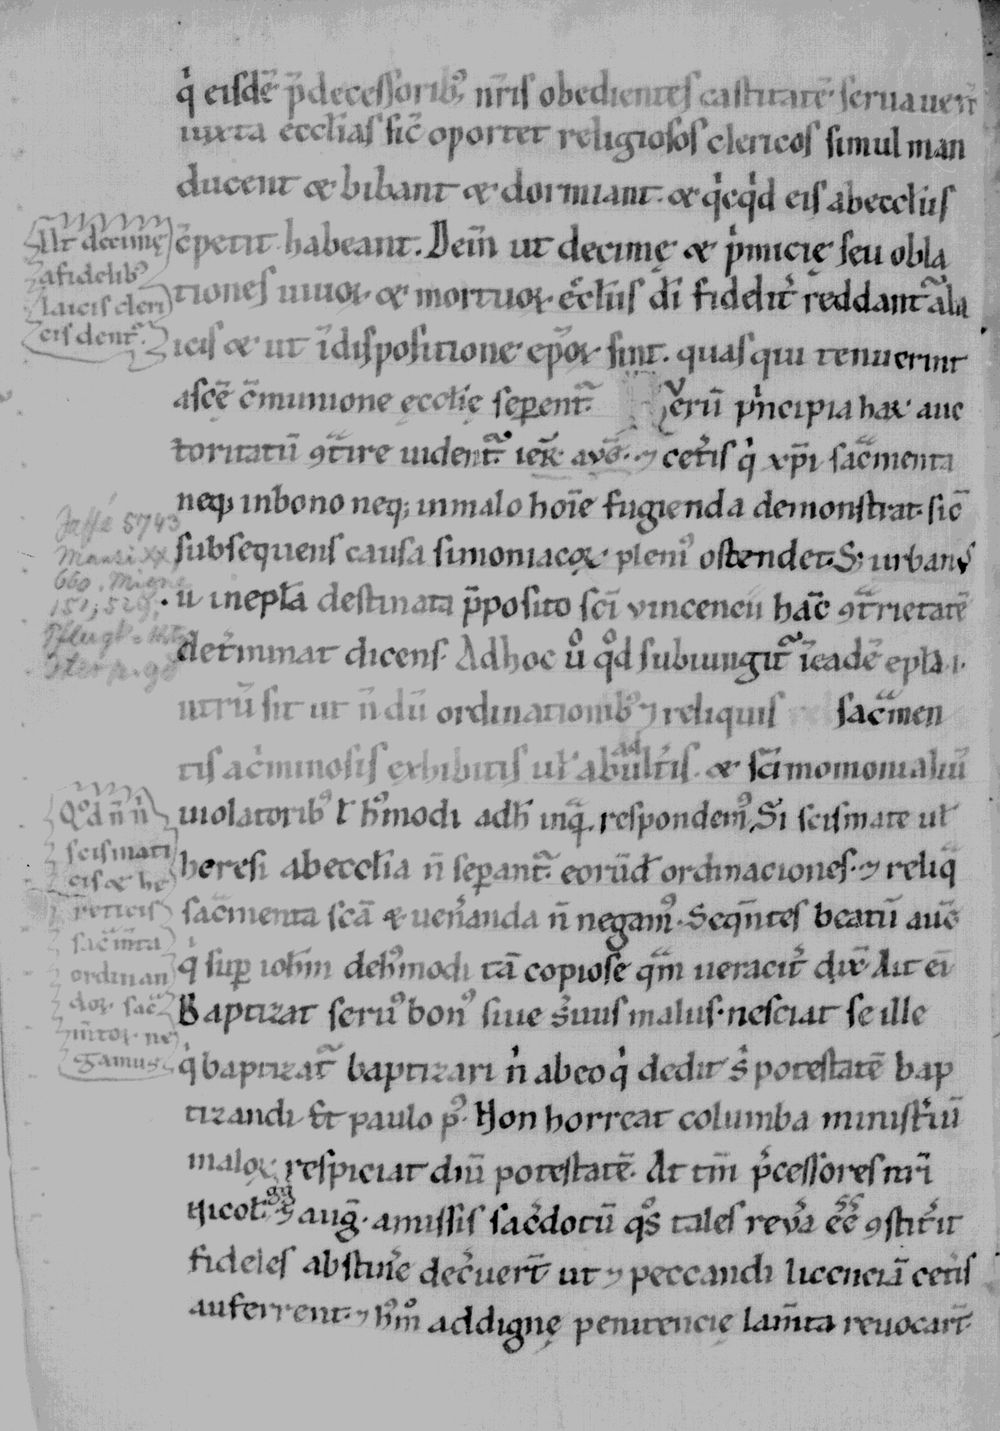 q͛ eisdē p̄decessoribꝰ nr̄is obedientes castitatē seruauer̄
iuxta ecclīas sic̄ oportet religiosos clericos simul man
ducent & bibant & dormiant. & q͛cq͛d eis ab ecclīis
c̄petit habeant. Dem̄ ut decimę & p͛micię seu obla
tiones uiuoꝝ & mortuoꝝ ec̄clīis dī fidelit͛ reddant᷑ a la
icis & ut ī dispositione ep̄oꝝ sint. quas qui tenuerint
a scē c̄munione ęcclię sep̱ent᷑. Verū p͛ncipia hax auc
toritatū ꝯtͣire uident᷑ ier̄. auḡ. ⁊ cet͛is q͛ xp̄i sac͛menta
neqꝫ in bono neqꝫ in malo hoīe fugienda demonstrat. sic̄
subsequens causa simoniacoꝝ pleniꝰ ostendet. S; urbanꝰ
ii in epl̄a destinata p̄posito sc̄i vincencii hac̄ ꝯtͣrietatē
det͛minat dicens. Ad hoc ů qͦd subiungit᷑ ī eadē epl̄a .i.
utrū sit ut n̄ dū ordinationibꝰ ⁊ reliquis sac͛men
tis a c͛minosis exhibitis ul̄ ab adult͛is. & sc̄imomonialiū
uiolatoribꝰ l̄ hꝰmodi adh̄ inqͣ. respondemꝰ. Si scismate ul̄
heresi ab ecclīa n̄ sep̱ant᷑. eorūd̄ ordinaciones. ⁊ reliqͣ
sac͛menta scā & uen͛anda n̄ negamꝰ. Seq̄ntes beatū auḡ
q͛ suꝑ ioh̄m de hꝰmodi tā copiose qͣm ueracit͛ dix̄. Ait eī
Baptizat seruꝰ bonꝰ siue s͛uus malus. nesciat se ille
q͛ baptizat᷑ baptizari n͛ ab eo q͛ dedit s͛ potestatē bap
tizandi. Et paulo pꝰ. Non horreat columba minist͛iū
maloꝝ respiciat dn̄i potestatē. At tm̄ p͛cessores nr̄i
Nicol. gg ⁊ auḡ. amissis sac͛dotū qͦs tales reu͛a eē̄ ꝯstit͛it
fideles abstin͛e dec͛uert̄ ut ⁊ peccandi licenciā cet͛is
auferrent. ⁊ hꝰmͦ ad dignę penitencię lam̄ta reuocart̄.
Ut decimę
a fidelibꝰ
laicis cleri
cis dent᷑.
Jaffé 5743
Mansi XX
660. Migne
151, 529.
Pflugk-Htg
Iter p. 90
Qͦd n̄ n͛
scismati
cis & he
reticis
sac͛m̄ta
ordinan
doꝝ sac͛
m̄toꝝ ne
gamus.